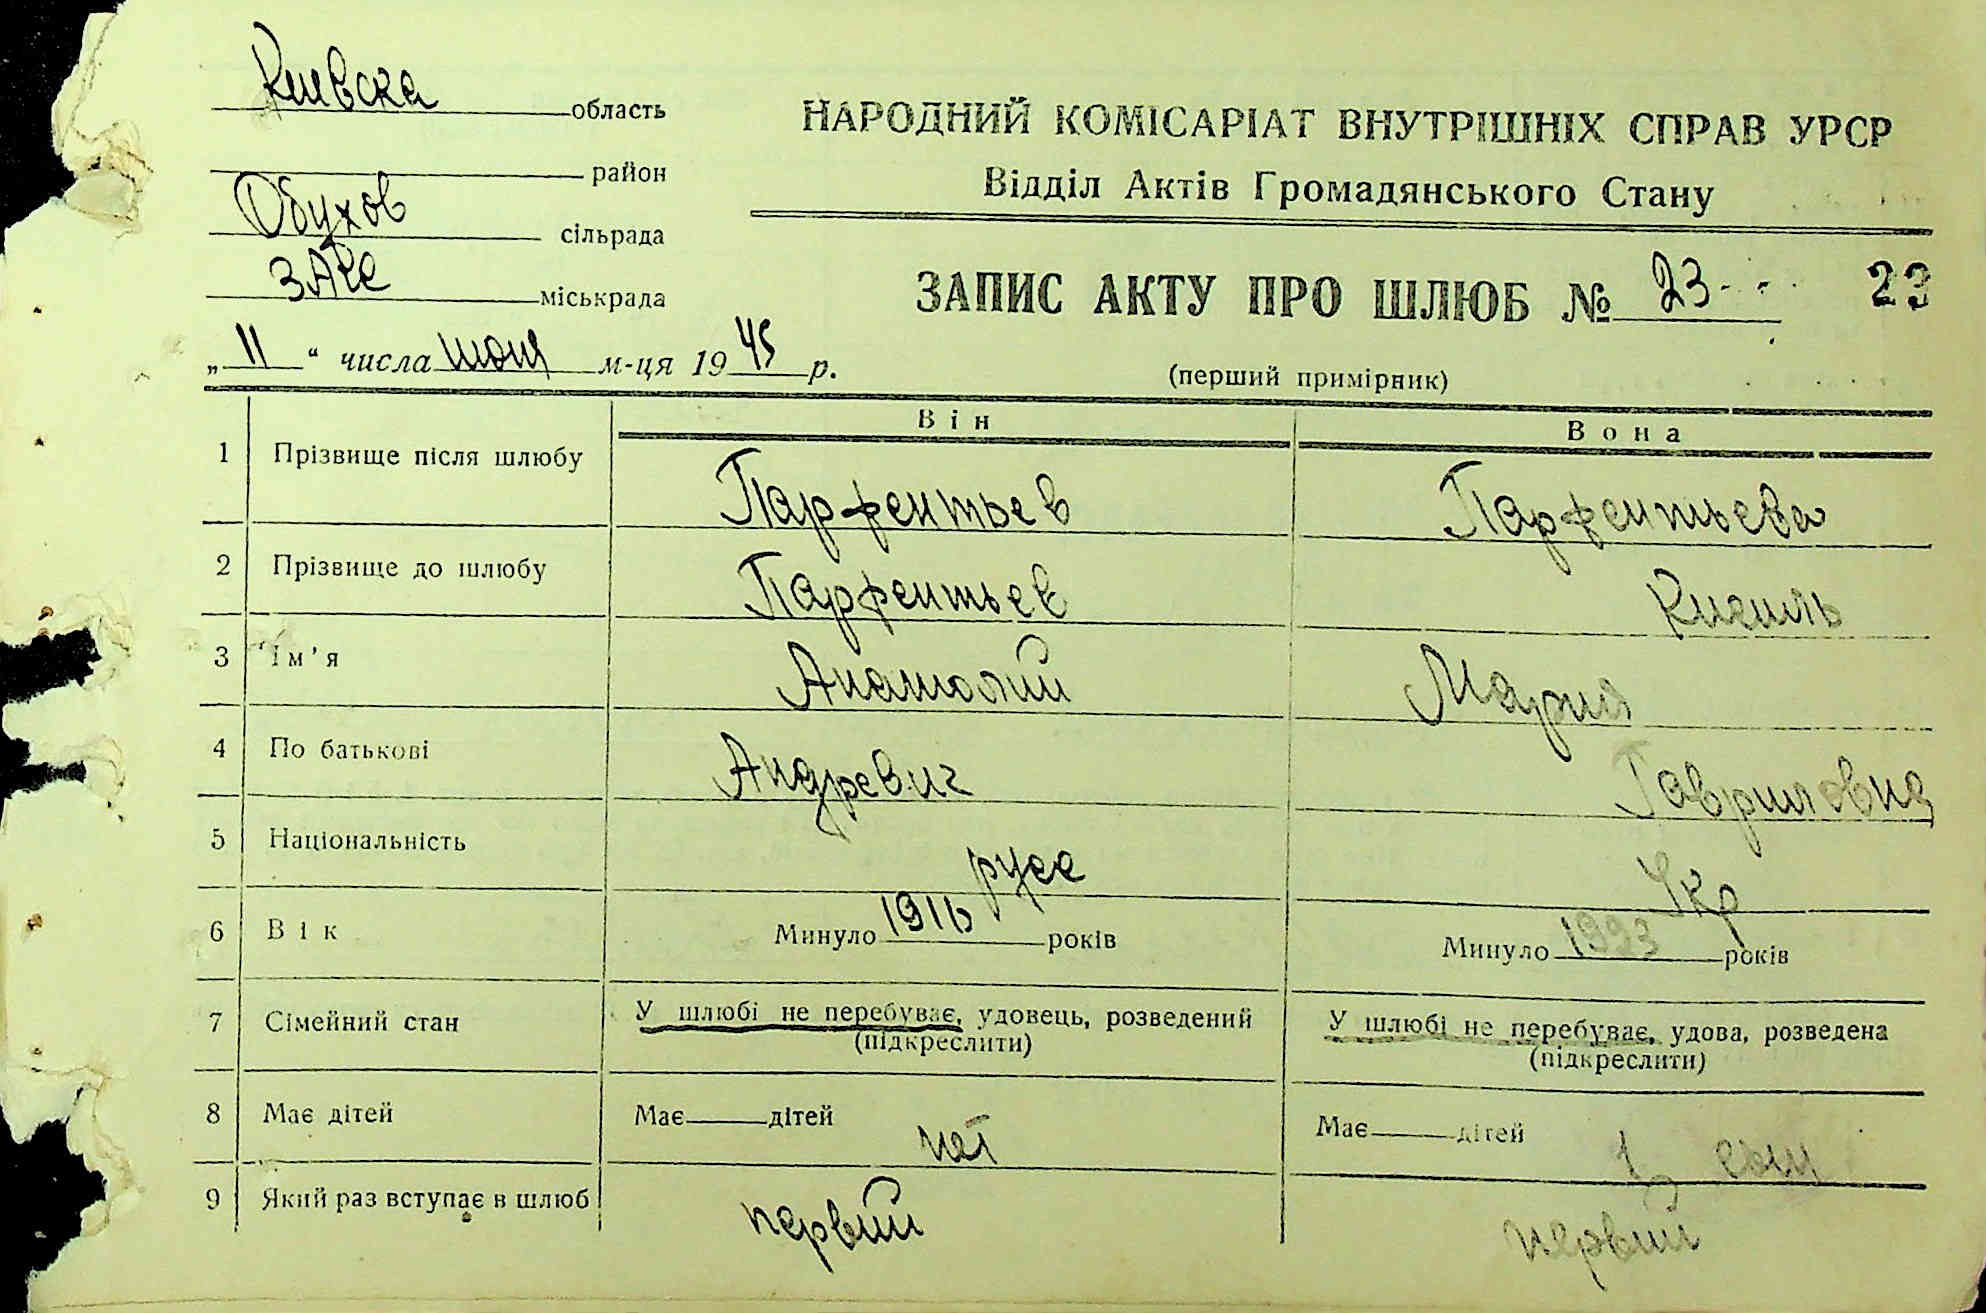 Киевска область
район
Обухов сільрада
ЗАГС міськрада
„ 11 “ числа июня м-ця 19 45 р.
НАРОДНИЙ КОМІСАРІАТ ВНУТРІШНІХ СПРАВ УРСР
Відділ Актів Громадянського Стану
ЗАПИС АКТУ ПРО ШЛЮБ № 23 23
(перший примірник)
Він Вона
1 Прізвище після шлюбу Парфентьев Парфентьева
2 Прізвище до шлюбу Парфентьев Кисиль
3 Ім'я Анатолий Мария
4 По батькові Андревич Гавриловна
5 Національність русс Укр
6 Вік Минуло 1916 років Минуло 1923 років
7 Сімейний стан У шлюбі не перебуває, удовець, розведений У шлюбі не перебуває, удова, розведена
(підкреслити) (підкреслити)
8 Має дітей Має дітей нет Має дітей 1 сын
9 Який раз вступає в шлюб первий первий